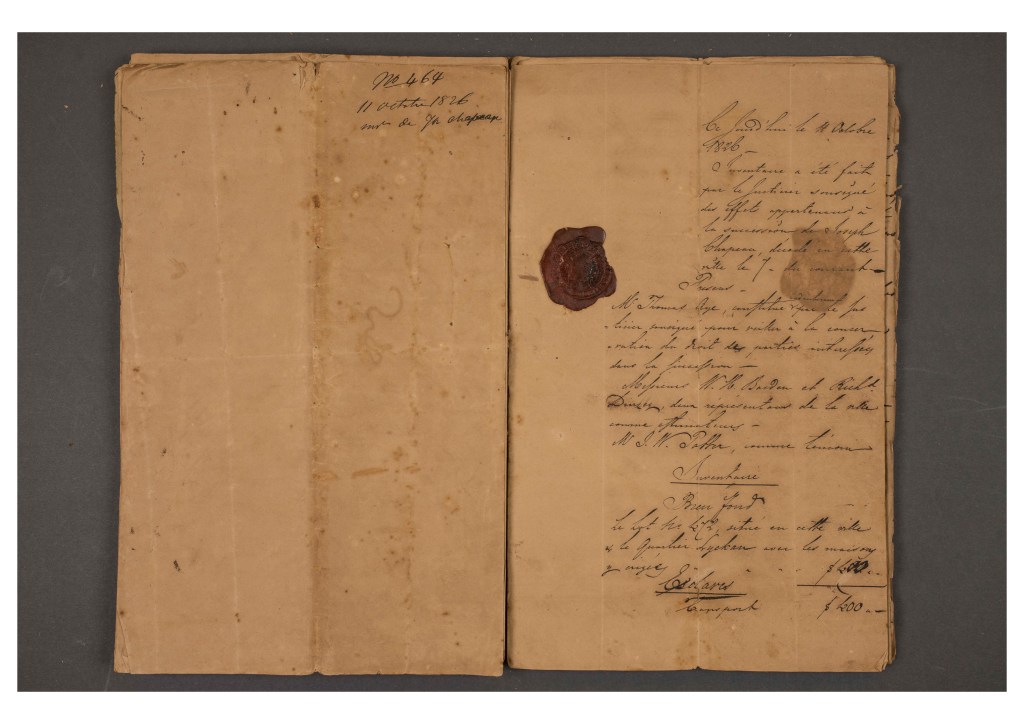 No 464
11 octobre 1826
invre de Jh Chapeau
Ce Jourd'hui le 11 Octobre
1826 —
Inventaire a été faite
par le Justicier soussigné
des effets appartenans à
la succession de Joseph
Chapeau, décédé en cette
ville le 7 du courant —
Présens —
Mr Thomas Aye, constitué par le Jus
ticier soussigné pour veiller à la conser
vation du droit des parties intéressées
dans la succession —
Messieurs W. H. Borden et Richd
deux représentans de la ville
comme estimateurs —
Mr J. W. Potter, comme témoin
Inventaire
Bien fond
Le Lot No 472, situé en cette ville
le Quartier avec les maisons
y érigées $ 400 —
Esclaves
Transport $ 400 —